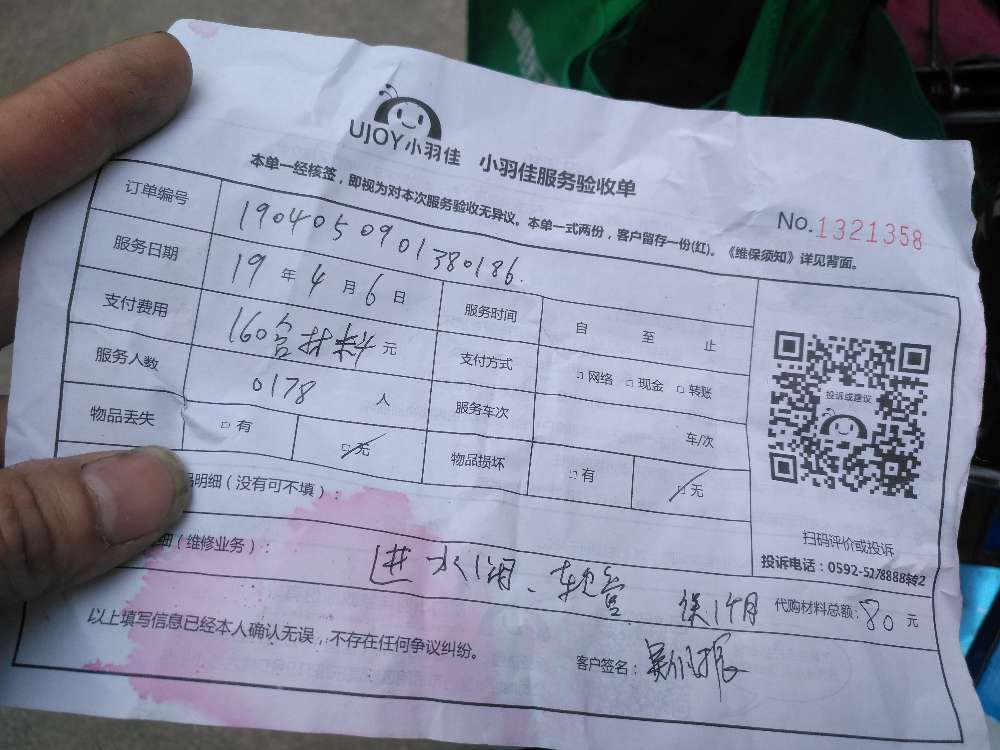 UJOY小羽佳 小羽佳服务验收单
本单一经核签，即视为对本次服务验收无异议。本单一式两份，客户留存一份(红)。《维保须知》详见背面。
No.1321358
订单编号 1904050901380186
服务日期 19年4月6日 服务时间 自 至 止
支付费用 160含材料元 支付方式 网络 现金 转账
服务人数 0178 人 服务车次 车/次
物品丢失 有 无 物品损坏 有 无
投诉或建议
扫码评价或投诉
投诉电话：0592-5178888转2
品明细（没有可不填）：
细（维修业务）： 进水阀、软管 保1个月 代购材料总额：80元
以上填写信息已经本人确认无误，不存在任何争议纠纷。
客户签名：